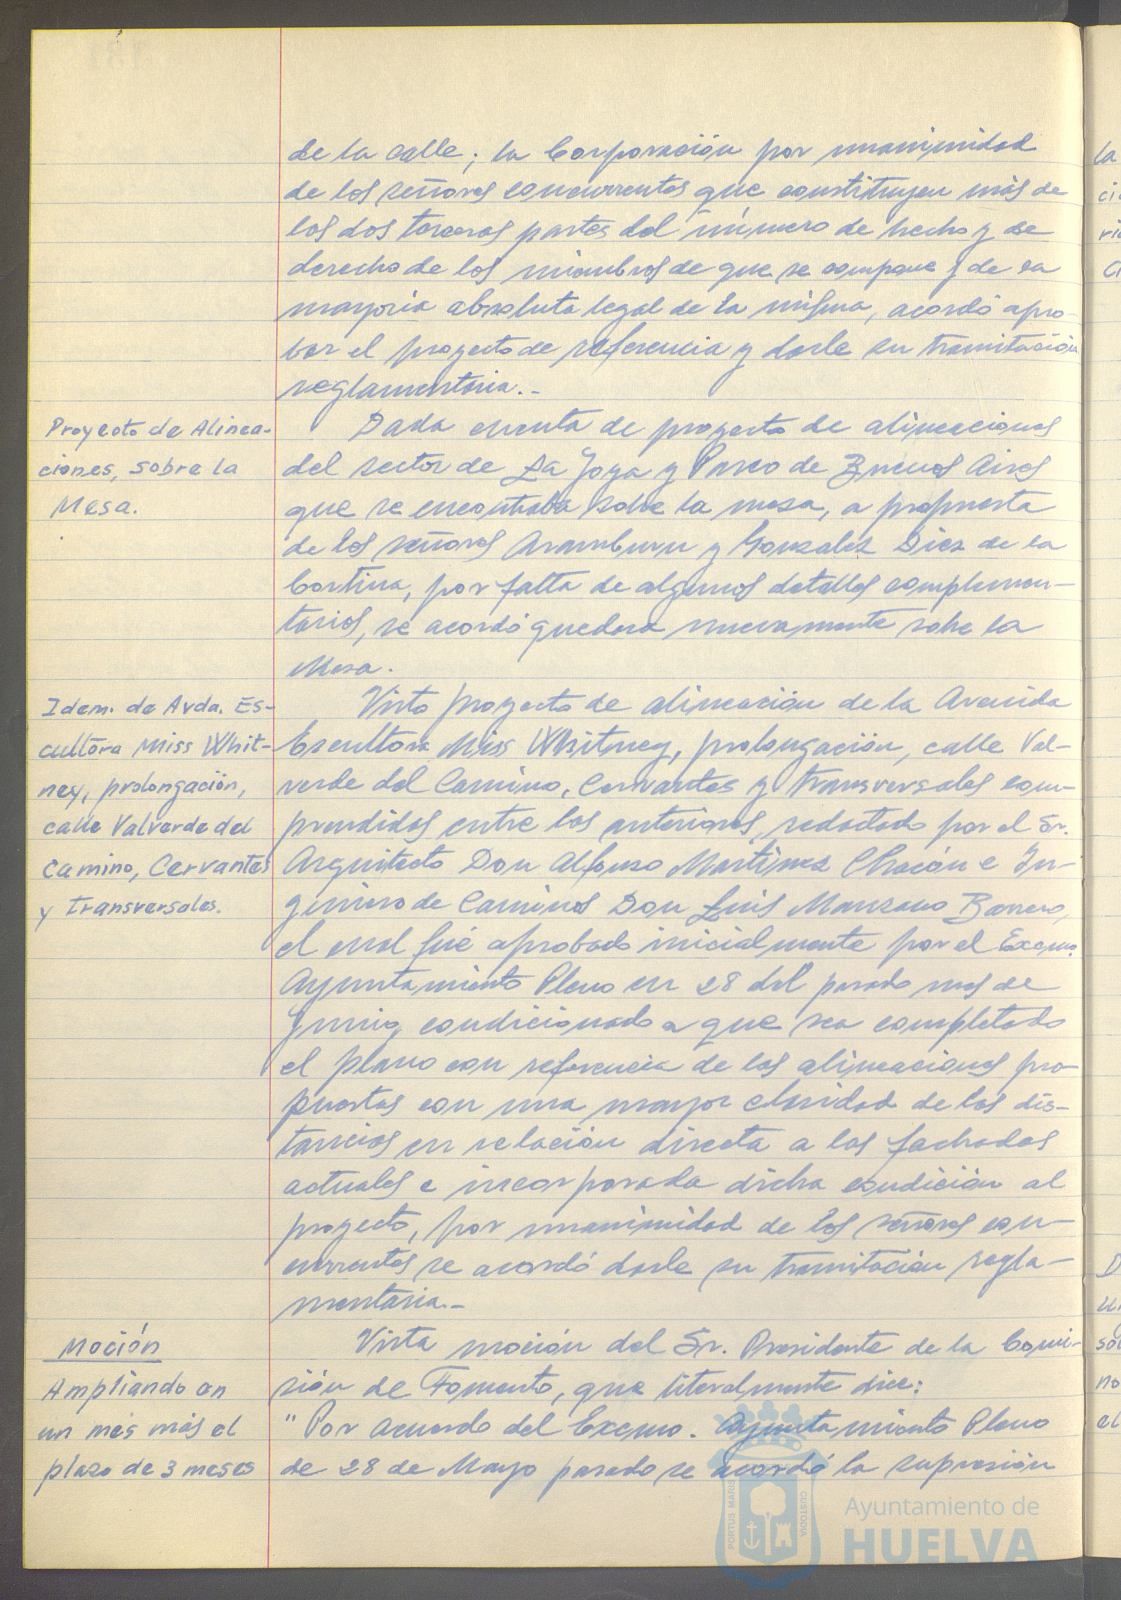 de la calle; la Corporación por unanimidad
de los señores concurrentes que constituyen más de
las dos terceras partes del número de hecho y de
derecho de los miembros de que se compone y de la
mayoría absoluta legal de la misma, acordó apro-
bar el proyecto de referencia y darle su tramitación
reglamentaria.-
Proyecto de Alinea-
ciones, sobre la
Mesa.
Dada cuenta de proyecto de alineaciones
del sector de La Joya y Paseo de Buenos Aires
que se encontraba sobre la mesa, a propuesta
de los señores Aramburu y Gonzalez Diez de la
Cortina, por falta de algunos detalles complemen-
tarios, se acordó quedara nuevamente sobre la
Mesa.
Idem. de Avda. Es-
cultora Miss Whit-
ney, prolongación,
calle Valverde del
Camino, Cervantes
y Transversales.
Visto proyecto de alineación de la Avenida
Escultora Miss Whitney, prolongación, calle Val-
verde del Camino, Cervantes y transversales com-
prendidas entre las anteriores, redactado por el Sr.
Arquitecto Don Alfonso Martinez Chacón e In-
geniero de Caminos Don Luis Manzano Barrero,
el cual fué aprobado inicialmente por el Excmo.
Ayuntamiento Pleno en 28 del pasado mes de
Junio, condicionado a que sea completado
el plano con referencia de las alineaciones pro-
puestas con una mayor claridad de las dis-
tancias en relación directa a las fachadas
actuales e incorporada dicha condición al
proyecto, por unanimidad de los señores con-
currentes se acordó darle su tramitación regla-
mentaria.-
Moción
Ampliando en
un més más el
plazo de 3 meses
Vista moción del Sr. Presidente de la Comi-
sión de Fomento, que literalmente dice:
"Por acuerdo del Excmo. Ayuntamiento Pleno
de 28 de Mayo pasado se acordó la supresión
PORTUS MARIS
CUSTODIA
Ayuntamiento de
HUELVA